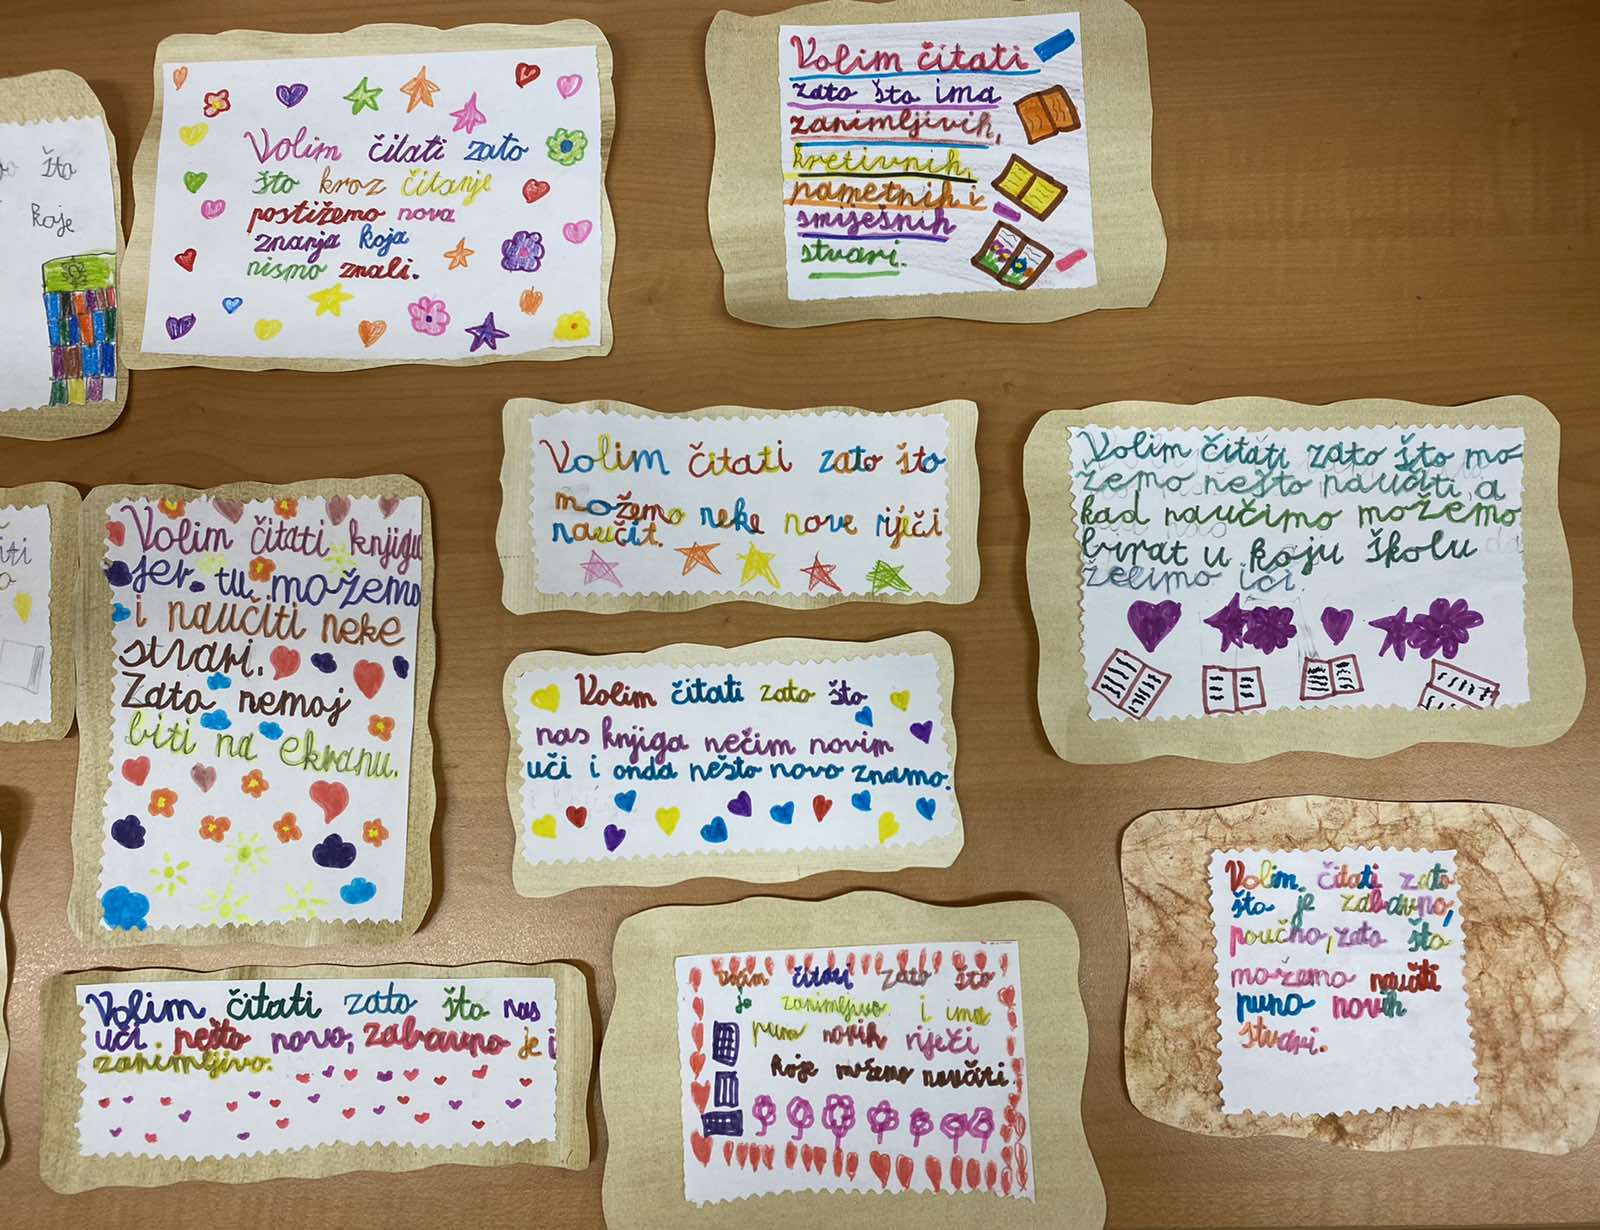 što
koje
Volim čitati zato
što kroz čitanje
postižemo nova
znanja koja
nismo znali.
Volim čitati
zato što ima
zanimljivih,
kretivnih,
pametnih i
smiješnih
stvari.
Volim čitati zato što
možemo neke nove riječi
naučit.
Volim čitati zato što mo-
žemo nešto naučiti a
kad naučimo možemo
birat u koju školu
želimo ići.
Volim čitati knjigu
jer tu možemo
i naučiti neke
stvari.
Zato nemoj
biti na ekranu.
Volim čitati zato što
nas knjiga nečim novim
uči i onda nešto novo znamo.
Volim čitati zato
što je zabavno,
poučno, zato što
možemo naučiti
puno novih
stvari.
Volim čitati zato što nas
uči nešto novo, zabavno je i
zanimljivo.
Volim čitati zato što
je zanimljivo i ima
puno novih riječi
koje možemo naučiti.